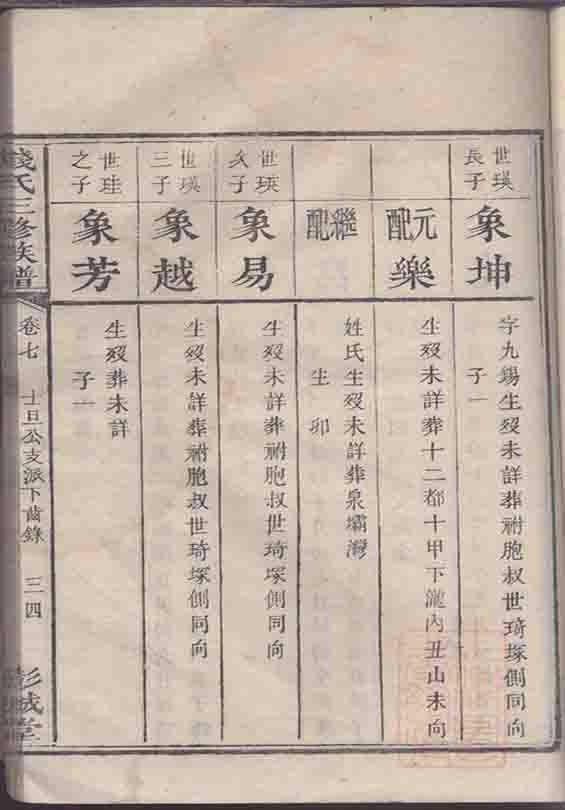 世瑛
長子
象坤
字九錫生歿未詳葬祔胞叔世琦塚側同向
子一
元配
樂
生歿未詳葬十二都十甲下瀧內丑山未向
繼配
姓氏生歿未詳葬泉壩灣
生 卯
世瑛
次子
象易
生歿未詳葬祔胞叔世琦塚側同向
世瑛
三子
象越
生歿未詳葬祔胞叔世琦塚側同向
世珪
之子
象芳
生歿葬未詳
子一
錢氏三修族譜
卷七
士旦公支派下齒錄
三四
彭城堂